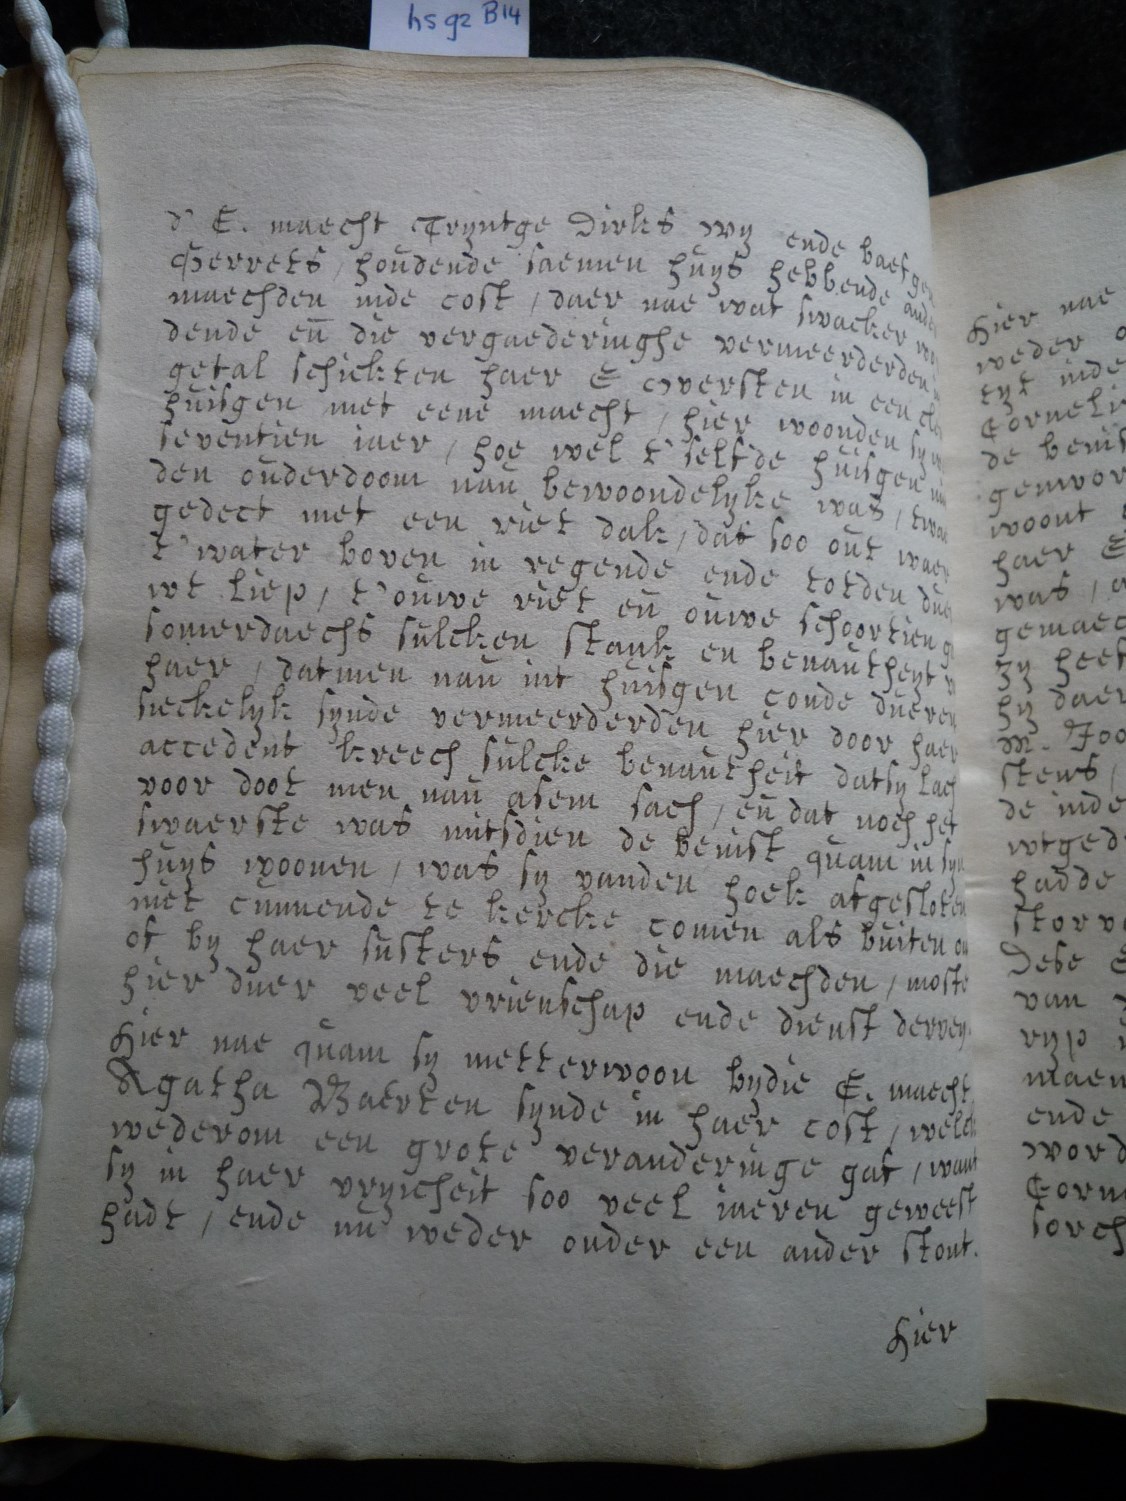 hs 92 B14
d' E. maecht Tryntge Dirks wy ende baefge
Gerrets / houdende saemen huys hebbende ander
maechden inde cost / daer nae wat swacker
dende en̄ die vergaederinghe vermeerderden
getal schickten haer E Oversten in een
huisgen met eene maecht / hier woonden sy
seventien iaer / hoe wel t'selfde huisgen
den ouderdoom nau bewoondelyke was /
gedect met een riet dak / dat soo out waer
t'water boven in regende ende totden duer
wt liep / t'ouwe riet en̄ ouwe schoortien
somerdaechs sulcken stank en benautheyt
haer / datmen nau int huisgen conde dueren
sieckelyk synde vermeerderden hier door haer
accedent kreech sulcke benautheit datsy lach
voor doot men nau asem sach / en̄ dat noch het
swaerste was mitsdien de benist quam in syn
huys woonen / was sy vanden hoek afgesloten
niet cunnende te kercke comen als buiten om
of by haer susters ende die maechden / moste
hier duer veel vrienschap ende dienst derven
hier nae quam sy metterwoon bydie E. maecht
Agatha Baerten synde in haer cost / welck
wederom een grote veranderinge gaf / want
sy in haer vryicheit soo veel iaeren geweest
hadt / ende nu weder onder een ander stont.
hier
hier nae
weder
tyt inde
Corneli
de benis
gewor
woont
haer E
was /
gemaec
hy heef
hy daer
M. Joo
stens /
de inde
wtged
hadde
storv
Dese E
van
ryp
maen
ende
word
Corn
sorch